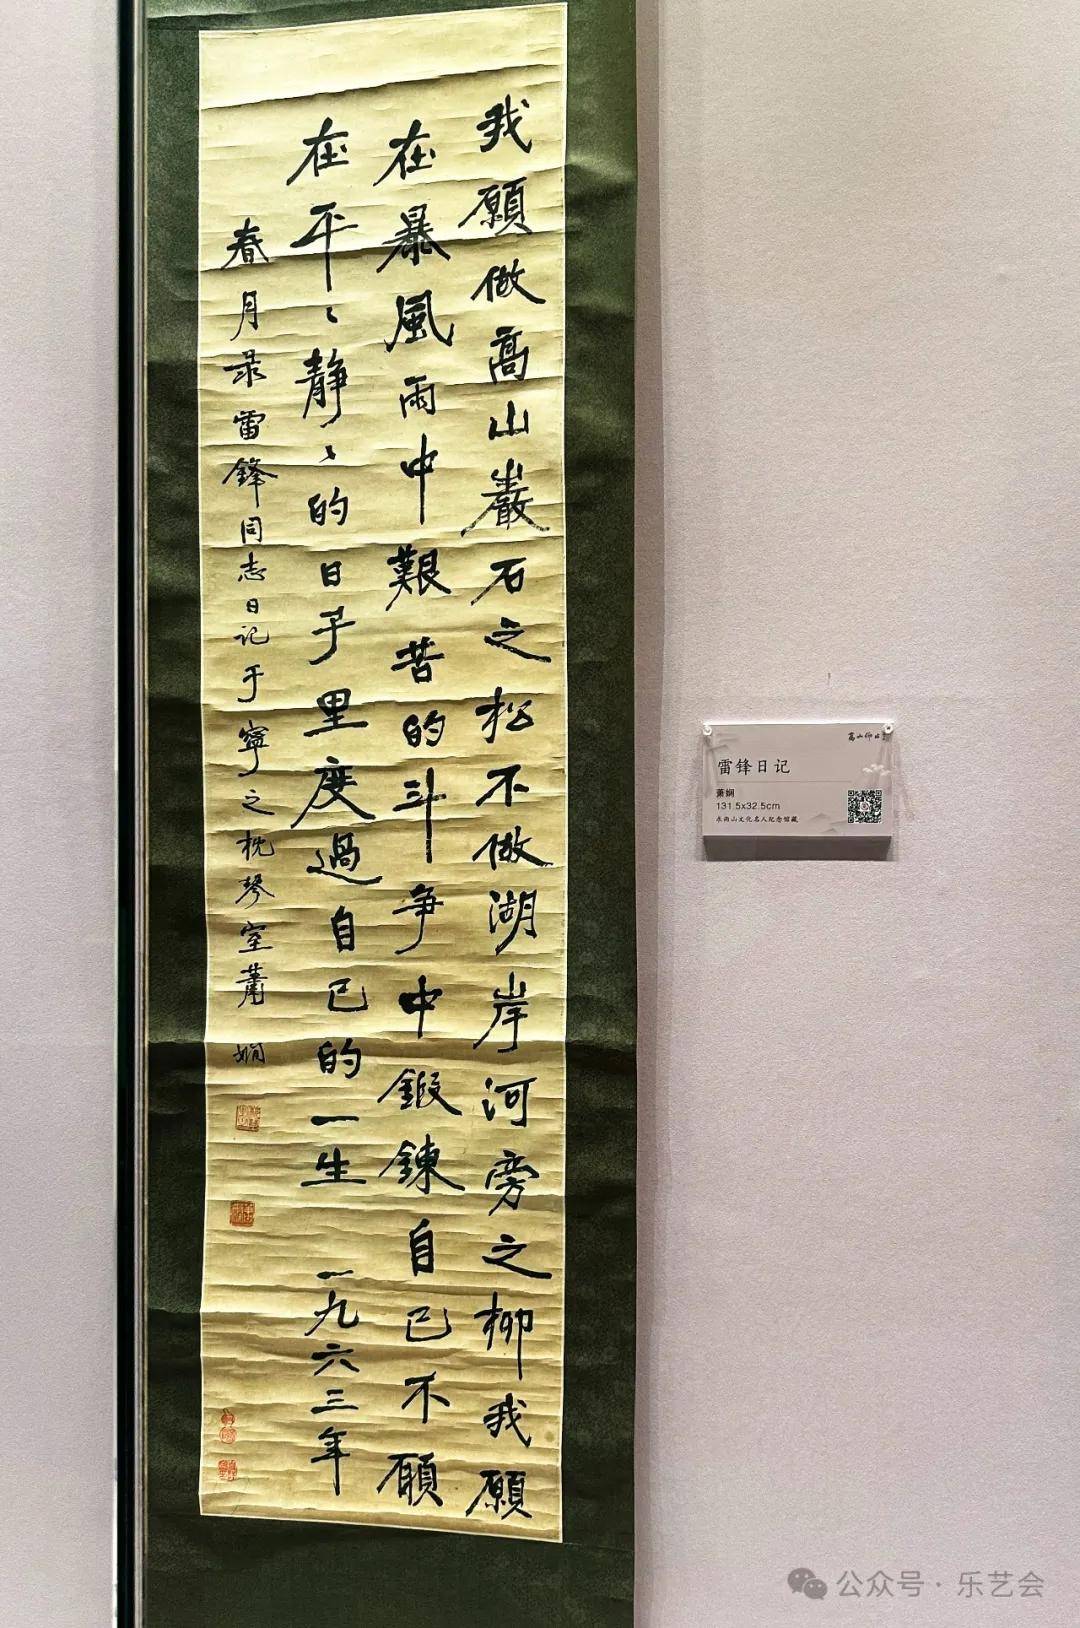 我願做高山巖石之松不做湖岸河旁之柳我願
在暴風雨中艱苦的斗争中鍛鍊自己不願
在平〻靜〻的日子里度過自己的一生 一九六三年
春月录雷鋒同志日记于寧之枕琴室蕭嫻
高山仰止
雷锋日记
萧娴
131.5x32.5cm
求雨山文化名人纪念馆藏
公众号·乐艺会